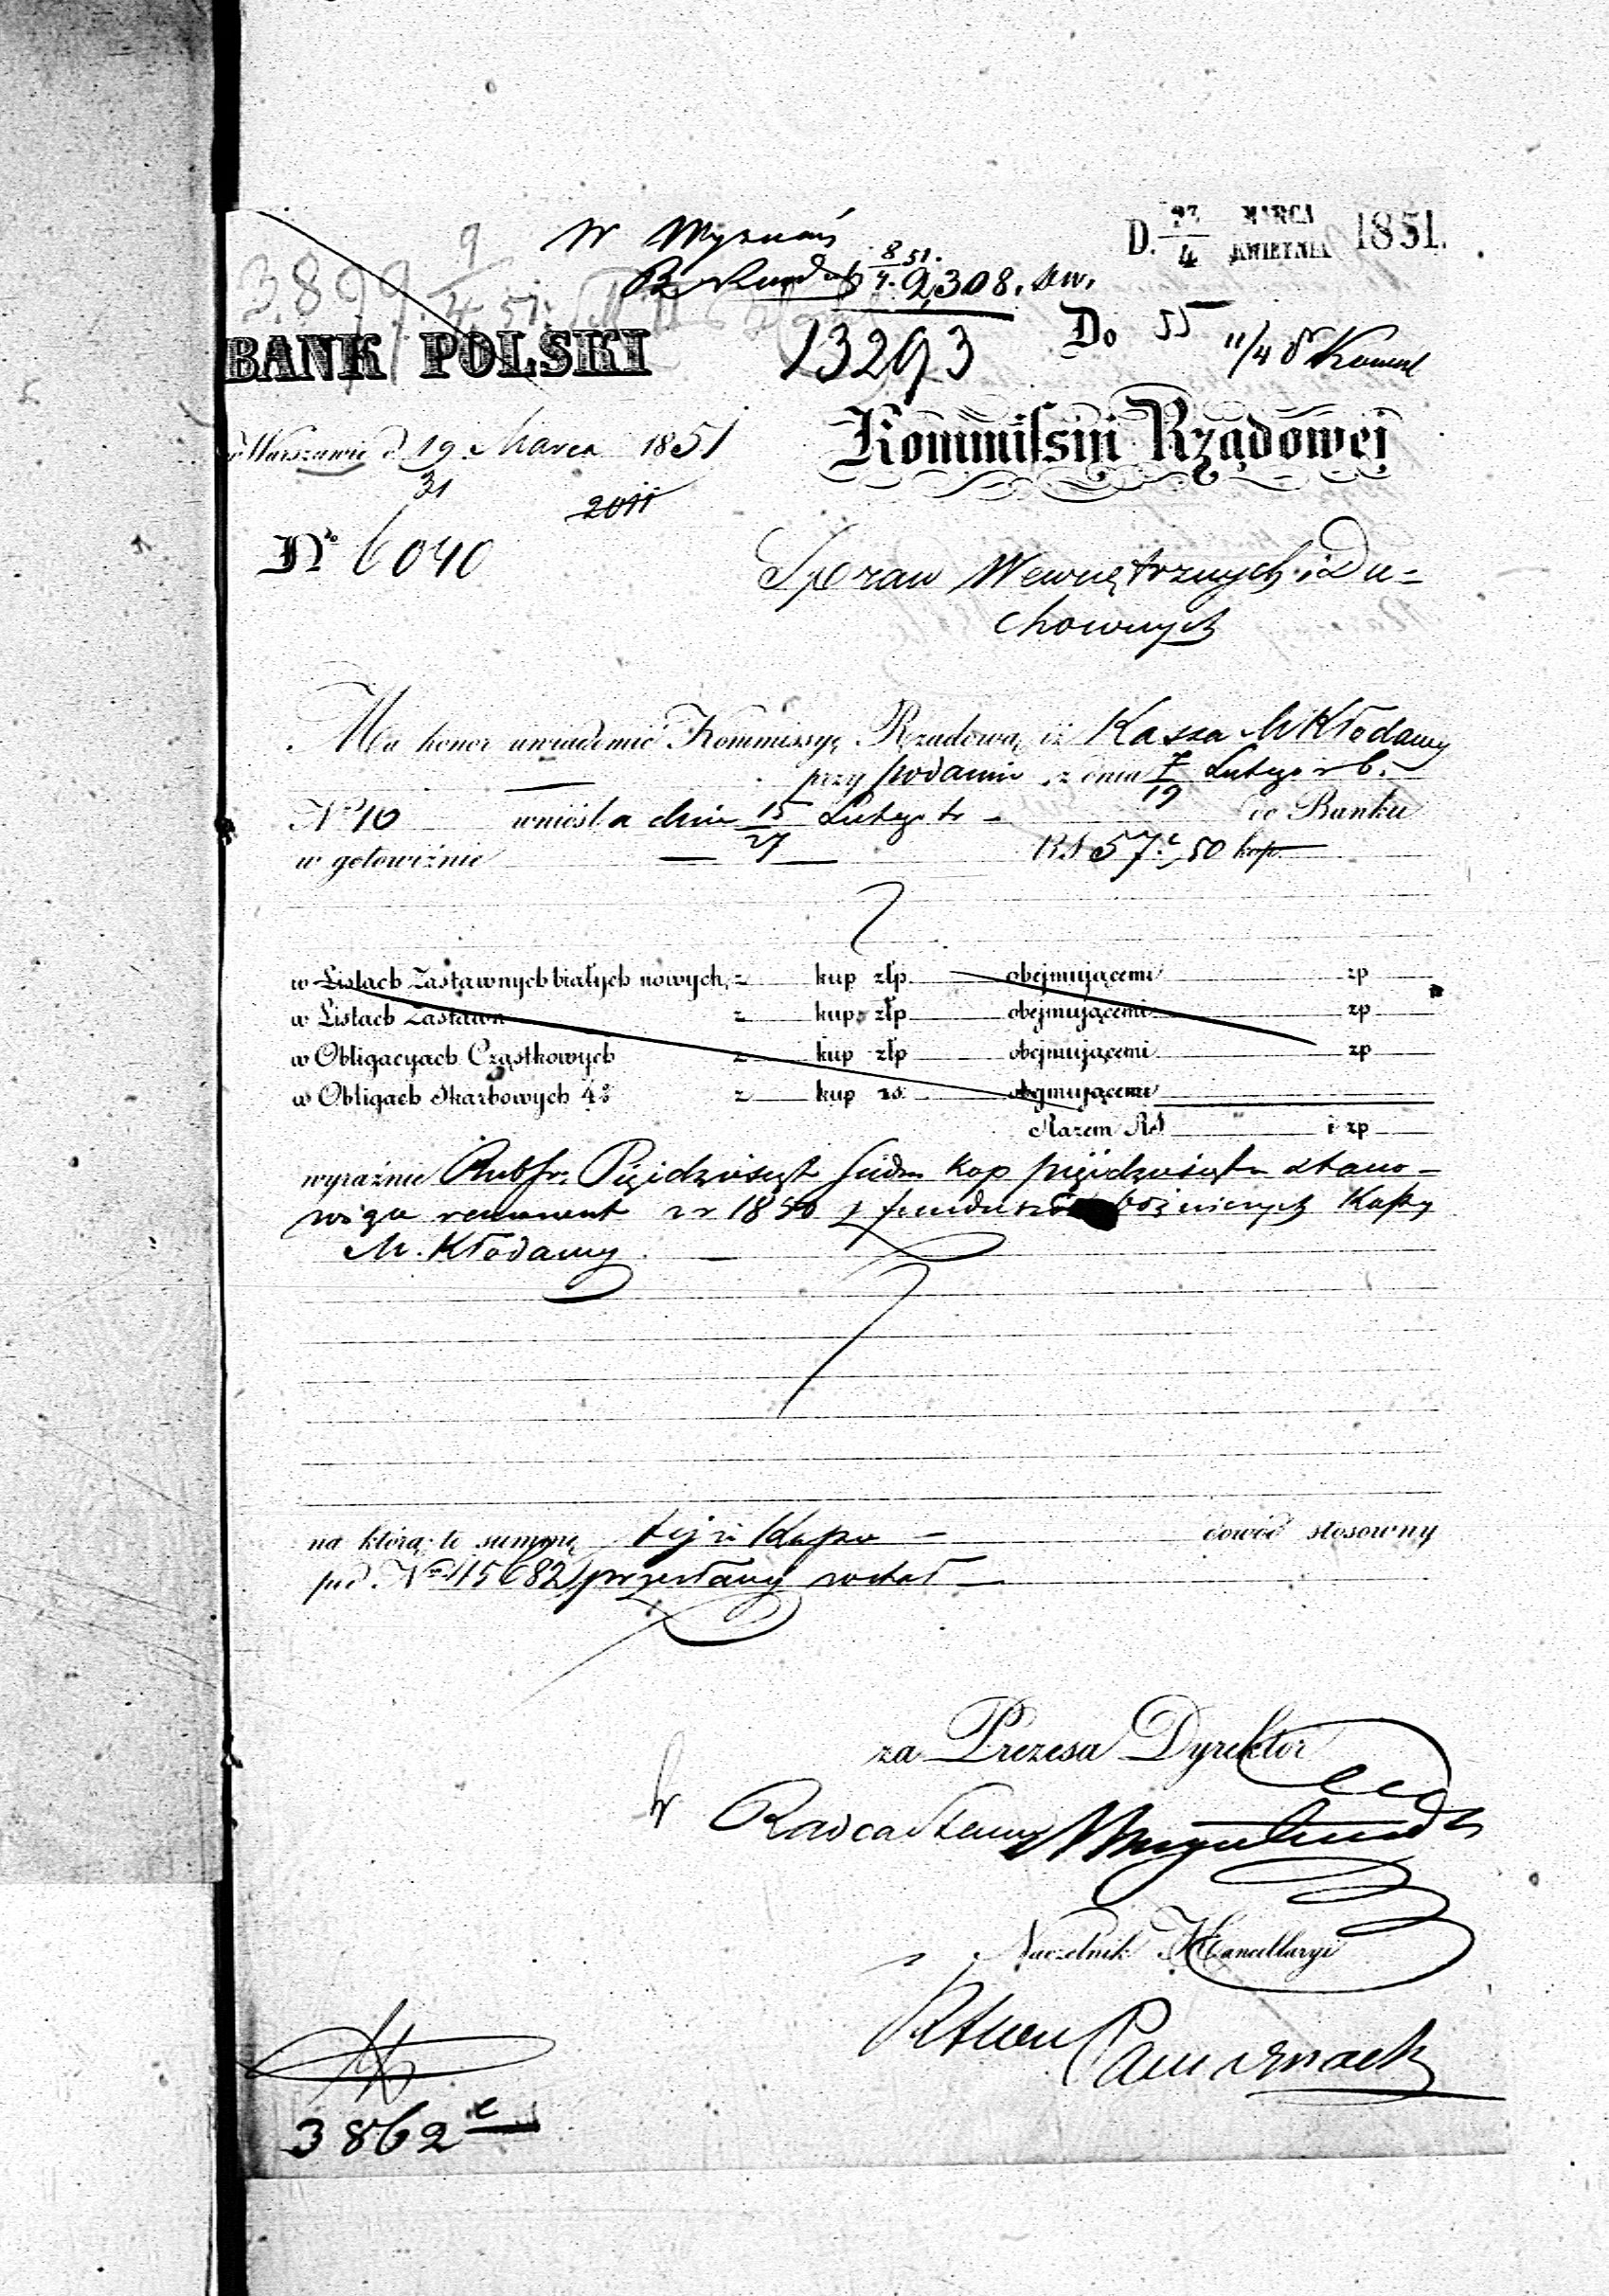 W Wyznań
8/4 51. 2,308. sw.
D. 23/4 MARCA KWIETNIA 1851.
3899. 9/4 51.
BANK POLSKI
13293
Do 55 11/4
Kommissii Rządowej
w Warszawie d 19/31 Marca 1851
2011
No 6040
Spraw Wewnętrznych i Du=
chownych
Ma honor uwiadomić Kommissyę Rządową iż Kassa M Kłodawy
przy podaniu z dnia 7/19 Lutego r b.
No 10 wniosła dnia 15/27 Lutego tr do Banku
w gotowiźnie RS 57 k, 50 kop.
w Listach Zastawnych białych nowych, z kup złp. obejmującemi zp
w Listach Zastawn z kup. złp obejmującemi zp
w Obligacyach Cząstkowych z kup złp obejmującemi zp
w Obligach Skarbowych 4% z kup rs. obejmującemi
Razem RS i zp
wyraźnie Rubsr. Pięćdziesiąt siedm kop pięćdziesiąt stano=
wiące remanent z r 1850 z funduszów bożniczych Kassy
M. Kłodawy
na którą to summę tejże Kassie dowód stosowny
pod No 115682 przesłany został
za Prezesa Dyrektor
Radca Stanu
Naczelnik Kancellaryi
3862